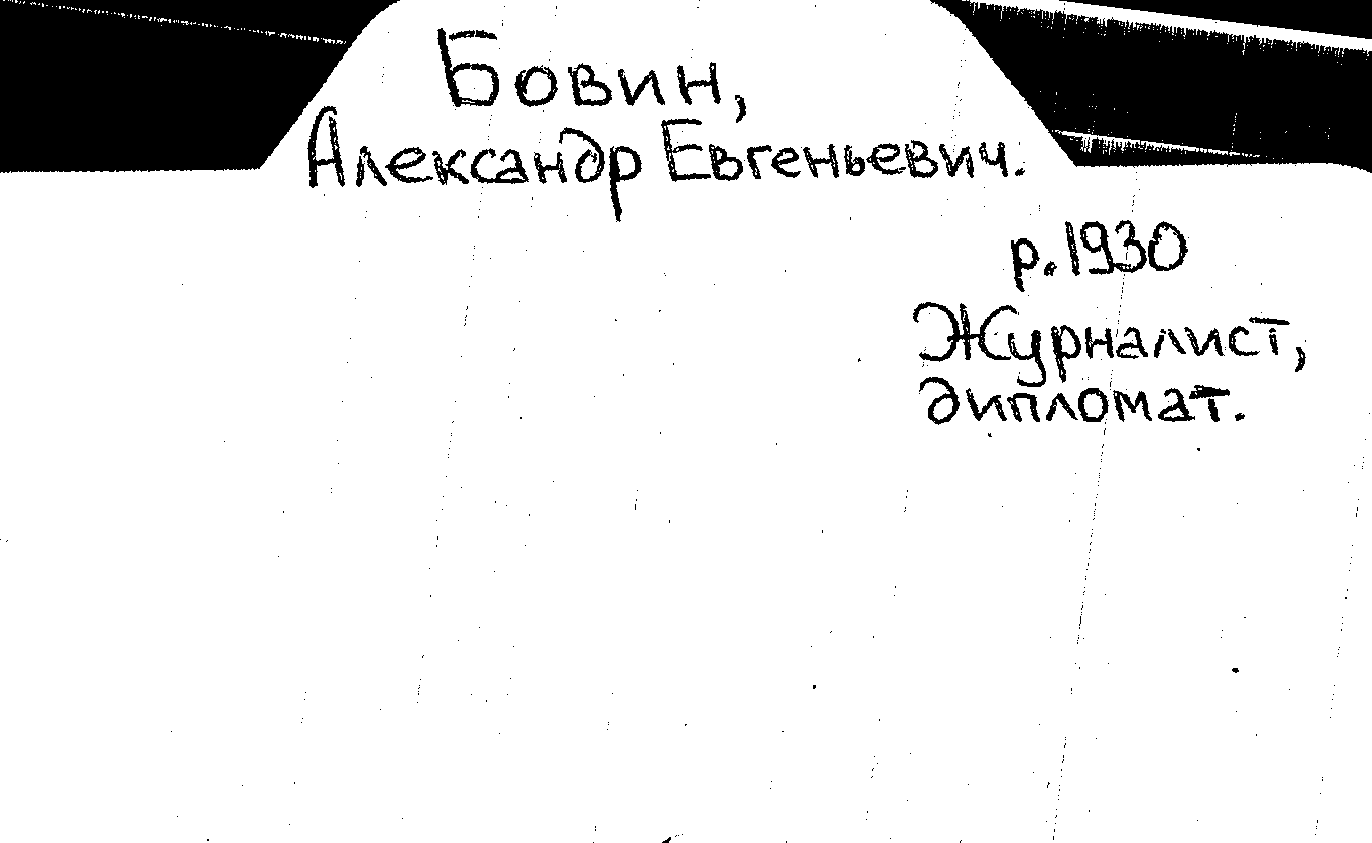 Бовин,
Александр Евгеньевич.
р. 1930
Журналист,
дипломат.